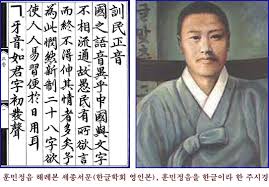 訓民正音
國之語音異乎中國與文字
不相流通故愚民有所欲言
而終不得伸其情者多矣予
為此憫然新制二十八字欲
使人人易習便於日用耳
ㄱ牙音如君字初發聲
훈민정음 해례본 세종서문(한글학회 영인본), 훈민정음을 한글이라 한 주시경